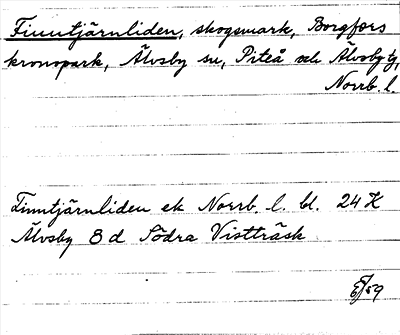 Finntjärnliden, skogsmark, Borgfors
kronopark, Älvsby sn, Piteå och Älvsby tg,
Norrb. l.
Finntjärnliden ek Norrb. l. bl. 24 K
Älvsby 8 d Södra Vistträsk